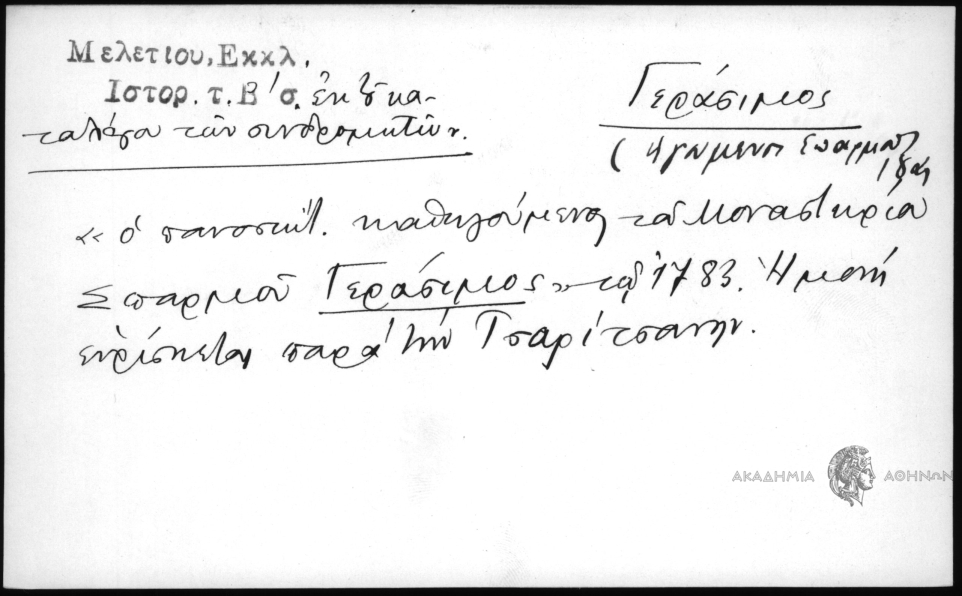 Μελετίου, Εκκλ.
Ιστορ. τ. Β′ σ. ἐκ τοῦ κα-
ταλόγου τῶν συνδρομητῶν.
Γεράσιμος
(Ἡγούμενος Σπαρμοῦ
« ὁ πανοσιώτ. καθηγούμενος τοῦ Μοναστηρίου
Σπαρμοῦ Γεράσιμος » τῷ 1783. Ἡ μονή
εὑρίσκεται παρὰ τὴν Τσαρίτσανην.
ΑΚΑΔΗΜΙΑ ΑΘΗΝΩΝ